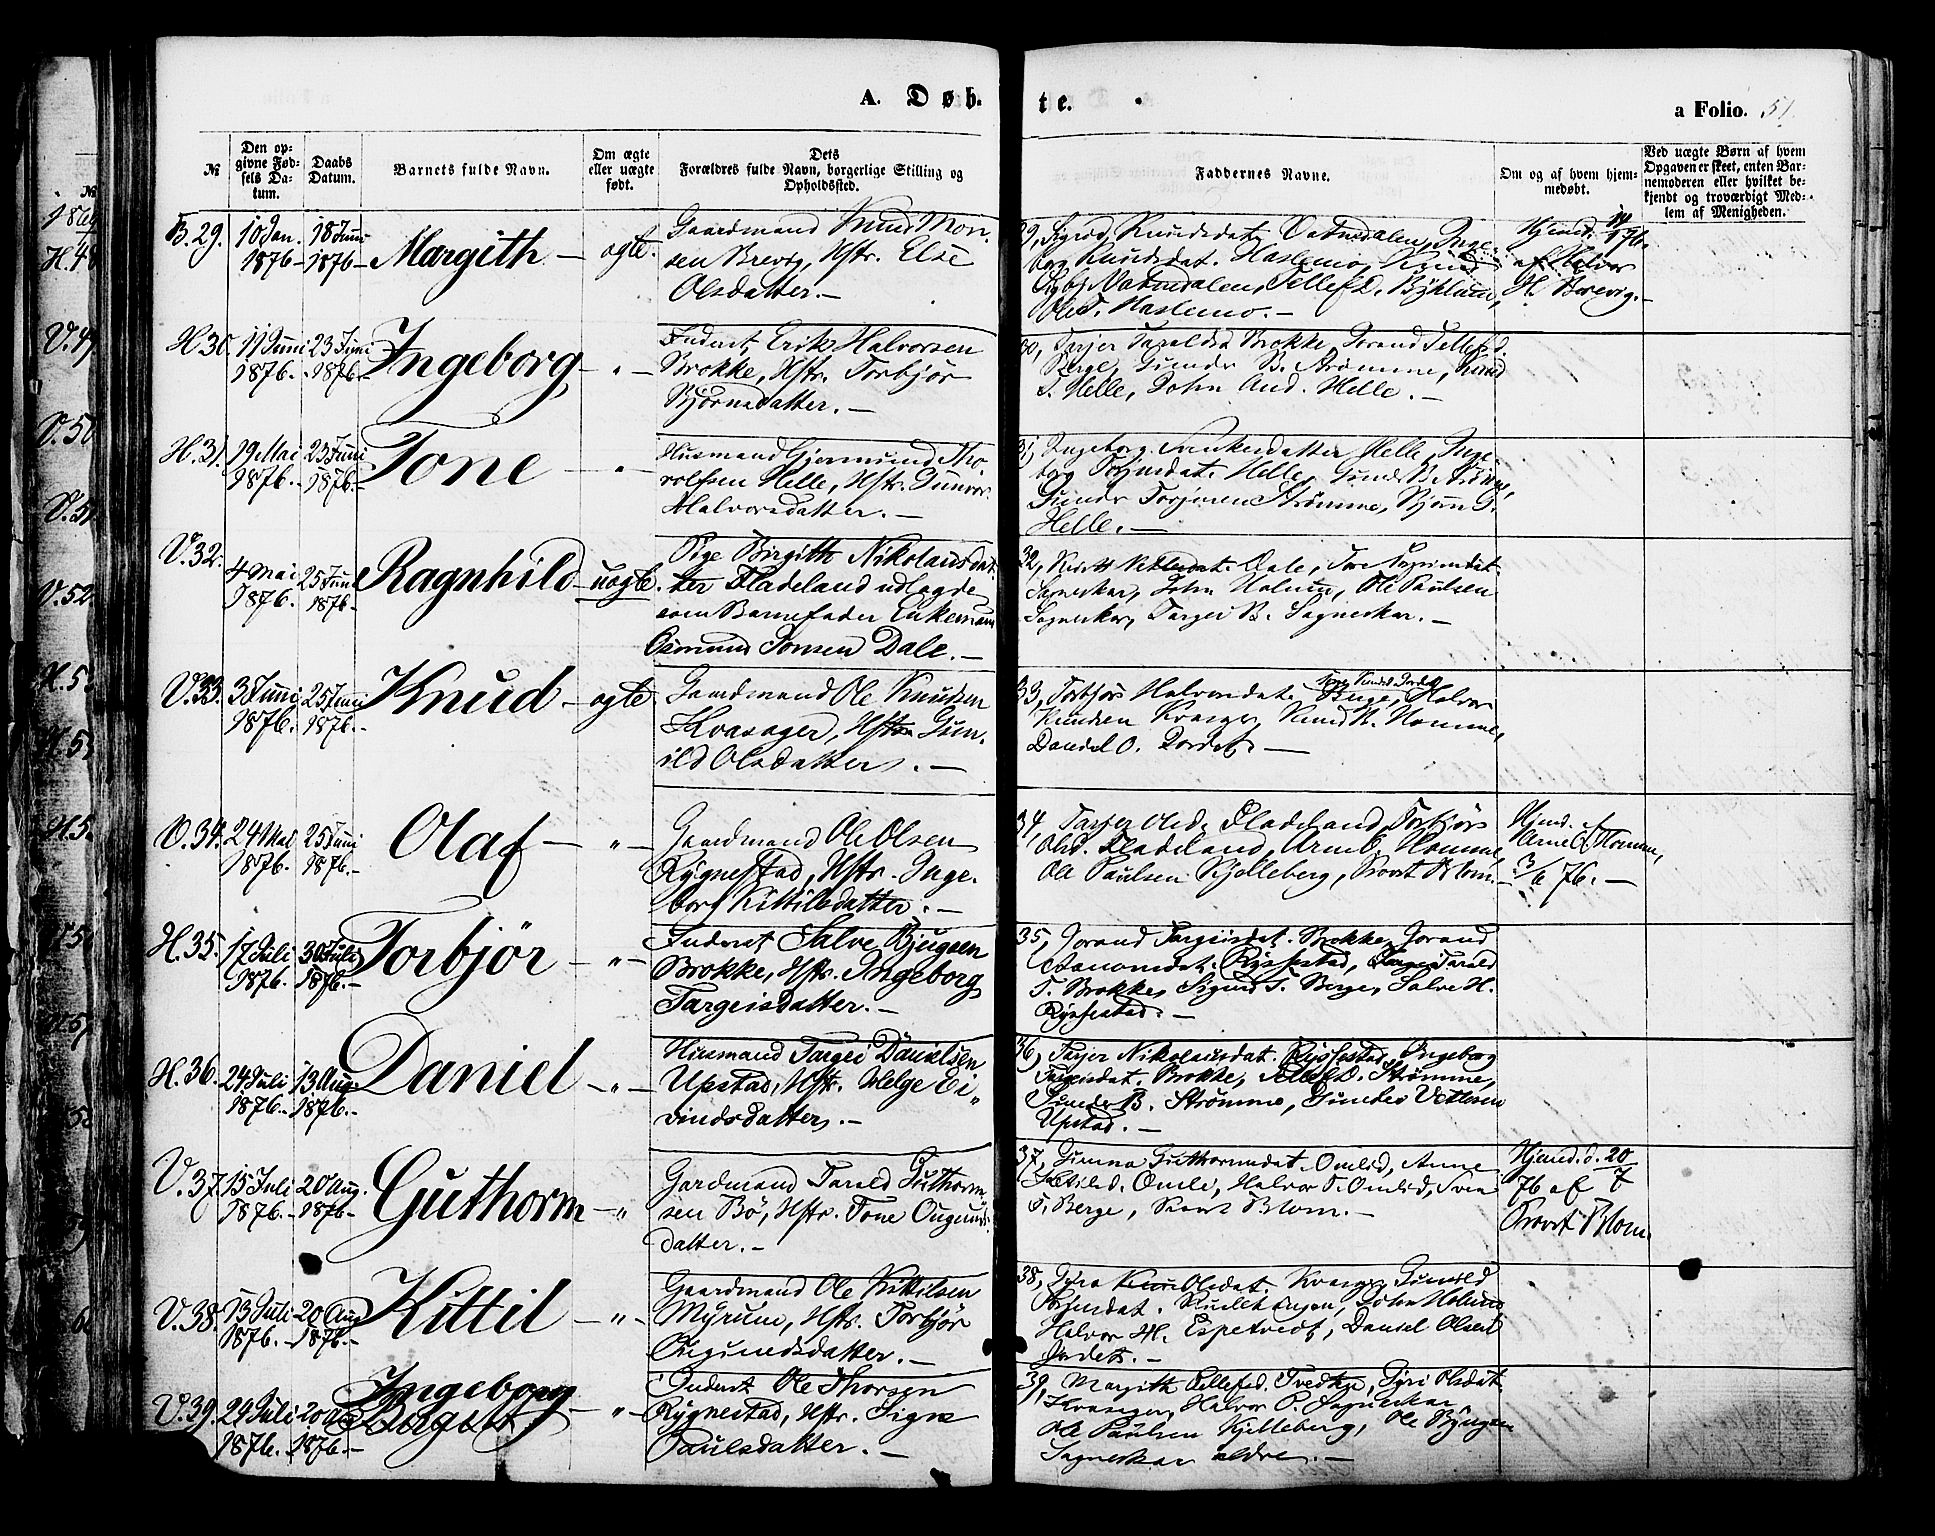 A. Døb-
te.
a Folio. 51.
№
Den op-
givne Fød-
sels Da-
tum.
Daabs
Datum.
Barnets fulde Navn.
Om ægte
eller uægte
født.
Dets
Forældres fulde Navn, borgerlige Stilling og
Opholdssted.
Faddernes Navne.
Om og af hvem hjem-
medøbt.
Ved uægte Børn af hvem
Opgaven er skeet, enten Bar-
nemoderen eller hvilket be-
kjendt og troværdigt Med-
lem af Menigheden.
B. 29. 10 Jan. 1876 18 Juni 1876 Margith ægte.
Gaardmand Knud Mon-
sen Brevig, Hstr. Else
Olsdatter.
Sigrid Knudsdat. Vatndalen, Inge-
borg Knudsdat. Haslemo, Knud
Sigbj. Vatndalen, Tellef D. Byklum,
Ole T. Haslemo.
Hjemd.
af Halvor
H. Brevig.
H. 30. 11 Juni 1876. 23 Juni 1876. Ingeborg "
Inderst Erik Halvorsen
Brokke, Hstr. Torbjør
Bjørnsdatter.
30, Tarjer Taraldsd. Brokke, Jorand Tellefsd.
Berge, Gunder B. Strømme, Knud
T. Helle, John And. Helle.
H. 31. 19 Mai 1876. 23 Juni 1876. Tone "
Husmand Gjermund Tho-
rolfsen Helle, Hstr. Gunvor
Halvorsdatter.
31, Ingeborg Svenkesdatter Helle, Inge-
borg Torjusdat. Helle, Gunder B. Strømme,
Gunder Torjusen Strømme, Bjørn G.
Helle.
V. 32. 4 Mai 1876. 25 Juni 1876. Ragnhild uægte.
Pige Birgith Nikolausdat-
ter Fladeland udlagde
som Barnefader Enkemand
Osmund Jonsen Dale.
32, Dale,
Sagneskar, John Holum, Ole Paulsen
Sagneskar, Targei B. Sagneskar.
V. 33. 3 Juni 1876. 25 Juni 1876. Knud ægte
Gaardmand Ole Knudsen
Kvasager, Hstr. Gun-
ild Olsdatter.
33, Torbjør Halvorsdat. Berge, Halvor
Knudsen Kvasager, Knud K. Homme,
Daniel O. Jordet.
V. 34. 24 Mai 1876. 25 Juni 1876. Olaf "
Gaardmand Ole Olsen
Rygnestad, Hstr. Inge-
borg Kittilsdatter.
34, Tarjer Olsd. Fladeland, Torbjør
Olsd. Fladeland, Arne Homme,
Ole Paulsen Kjelleberg, Knort Blom.
Hjemd. af
Arne Homme,
3/6 76.
H. 35. 17 Juli 1876. 30 Juli 1876. Torbjør "
Inderst Salve Bjugsen
Brokke, Hstr. Ingeborg
Targeisdatter.
35, Jorand Targeisdat. Brokke, Jorand
Aanonsdat. Ryssestad, Tarald
T. Brokke, Sigurd T. Berge, Salve H.
Ryssestad.
H. 36. 24 Juli 1876. 13 Aug. 1876. Daniel "
Husmand Targei Danielsen
Upstad, Hstr. Helge Ei-
vindsdatter.
36, Tarjer Nikolausdat. Ryssestad, Ingeborg
Targeisdat. Brokke, Tellef D. Strømme,
Gunder B. Strømme, Gunder Vetlesen
Upstad.
V. 37. 15 Juli 1876. 20 Aug. 1876 Guthorm "
Gardmand Tarald Guthorm-
sen Bø, Hstr. Tone Ougunds-
datter.
37, Gunna Guthormsdat. Omlid, Anne
Kittilsd. Omli, Halvor T. Omlid, Svein
T. Berge, Knort Blom.
Hjemd. d. 20/7
76 af
Knort Blom.
V. 38. 13 Juli 1876. 20 Aug 1876. Kittil "
Gaardmand Ole Kittilsen
Myrum, Hstr. Torbjør
Ougundsdatter.
38, Gyro Olsdat. Kvasager, Gunild
Torjusdat. John Holum,
Halvor H. Espetvedt, Daniel Olsen
Jordet.
V. 39. 24 Juli 1876. 20 Aug 1876. Ingeborg "
Inderst Ole Thorsen
Rygnestad, Hstr. Signe
Paulsdatter.
39, Margith Tellefsd. Tvedte, Gyri Olsdat.
Kvasager, Halvor P. Sagneskar,
Ole Paulsen Kjelleberg, Ole Bjugsen
Sagneskar ældre.